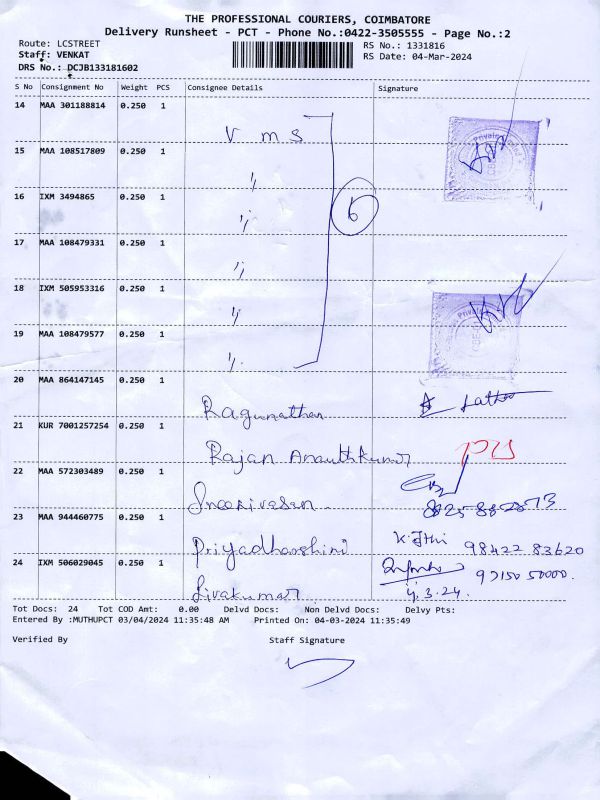 THE PROFESSIONAL COURIERS, COIMBATORE
Delivery Runsheet - PCT - Phone No.:0422-3505555 - Page No.:2
Route: LCSTREET RS No.: 1331816
Staff: VENKAT RS Date: 04-Mar-2024
DRS No.: DCJB133181602
S No Consignment No Weight PCS Consignee Details Signature
14 MAA 301188814 0.250 1 V M S
15 MAA 108517809 0.250 1 "
16 IXM 3494865 0.250 1 " 6
17 MAA 108479331 0.250 1 "
18 IXM 505953316 0.250 1 "
19 MAA 108479577 0.250 1 "
20 MAA 864147145 0.250 1 Ragunathan
21 KUR 7001257254 0.250 1 Rajan Ananthkumar
22 MAA 572303489 0.250 1 Sreenivasan
23 MAA 944460775 0.250 1 Priyadharshini 98422 83620
24 IXM 506029045 0.250 1 Sivakumar 97150 50000.
4.3.24.
Tot Docs: 24 Tot COD Amt: 0.00 Delvd Docs: Non Delvd Docs: Delvy Pts:
Entered By :MUTHUPCT 03/04/2024 11:35:48 AM Printed On: 04-03-2024 11:35:49
Verified By Staff Signature